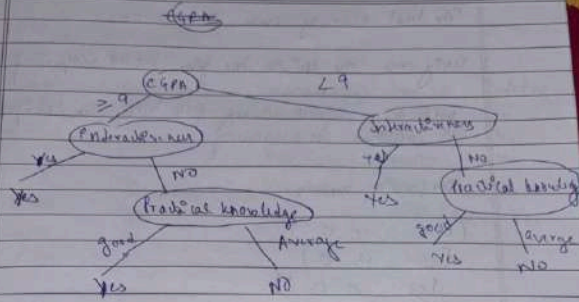 CGPA
CGPA
≥ 9 < 9
Interactiveness Interactiveness
Yes NO Yes NO
Yes Practical knowledge Yes Practical knowledge
good Average good average
Yes NO Yes NO